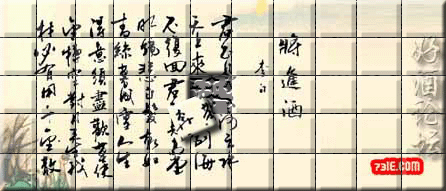 好酒论坛
將進酒
李白
君不見黃河之水
天上來流到海
不復回君不見高堂
明鏡悲白髮朝如
青絲暮成雪人生
得意須盡歡莫使
金樽空對月天生我
材必有用千金散
731E.COM